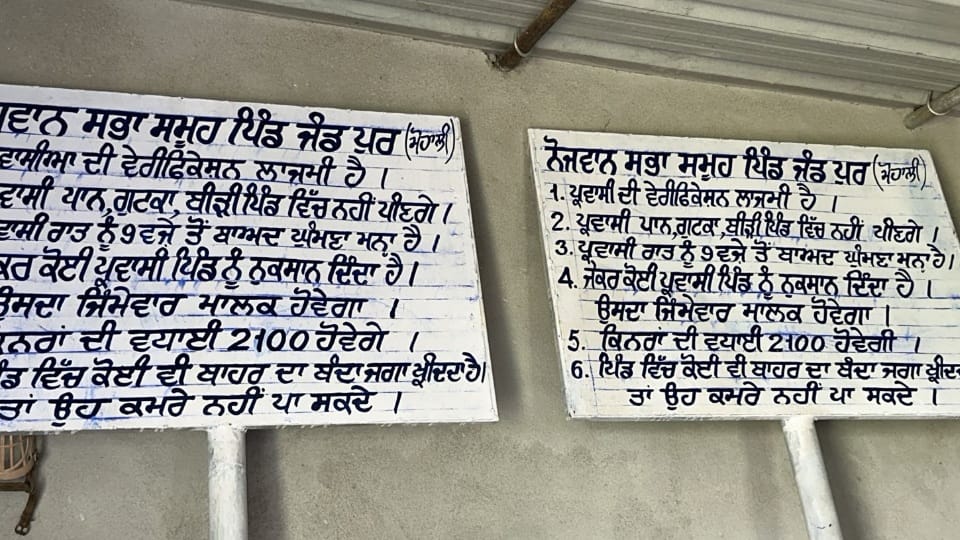 ਵਾਨ ਸਭਾ ਸਮੂਹ ਪਿੰਡ ਜੰਡ ਪੁਰ (ਮੋਹਾਲੀ)
ਵਾਸੀਆ ਦੀ ਵੇਰੀਫਿਕੇਸਨ ਲਾਜਮੀ ਹੈ ।
ਵਾਸੀ ਪਾਨ,ਗੁਟਕਾ, ਬੀੜੀ ਪਿੰਡ ਵਿੱਚ ਨਹੀਂ ਪੀਣਗੇ ।
ਵਾਸੀ ਰਾਤ ਨੂੰ 9 ਵਜੇ ਤੋਂ ਬਾਅਦ ਘੁੰਮਣਾ ਮਨ੍ਹਾ ਹੈ ।
ਕਰ ਕੋਈ ਪ੍ਰਵਾਸੀ ਪਿੰਡ ਨੂੰ ਨੁਕਸਾਨ ਦਿੰਦਾ ਹੈ ।
ਉਸਦਾ ਜਿੰਮੇਵਾਰ ਮਾਲਕ ਹੋਵੇਗਾ ।
ਨਰਾਂ ਦੀ ਵਧਾਈ 2100 ਹੋਵੇਗੇ ।
ਡ ਵਿੱਚ ਕੋਈ ਵੀ ਬਾਹਰ ਦਾ ਬੰਦਾ ਜਗਾ ਖ੍ਰੀਦਦਾ ਹੈ।
ਤਾਂ ਉਹ ਕਮਰੇ ਨਹੀਂ ਪਾ ਸਕਦੇ ।
ਨੋਜਵਾਨ ਸਭਾ ਸਮੂਹ ਪਿੰਡ ਜੰਡ ਪੁਰ (ਮੋਹਾਲੀ)
1. ਪ੍ਰਵਾਸੀ ਦੀ ਵੇਰੀਫਿਕੇਸਨ ਲਾਜਮੀ ਹੈ ।
2. ਪ੍ਰਵਾਸੀ ਪਾਨ,ਗੁਟਕਾ, ਬੀੜੀ ਪਿੰਡ ਵਿੱਚ ਨਹੀਂ ਪੀਣਗੇ ।
3. ਪ੍ਰਵਾਸੀ ਰਾਤ ਨੂੰ 9 ਵਜੇ ਤੋਂ ਬਾਅਦ ਘੁੰਮਣਾ ਮਨ੍ਹਾ ਹੈ।
4. ਜੇਕਰ ਕੋਈ ਪ੍ਰਵਾਸੀ ਪਿੰਡ ਨੂੰ ਨੁਕਸਾਨ ਦਿੰਦਾ ਹੈ ।
ਉਸਦਾ ਜਿੰਮੇਵਾਰ ਮਾਲਕ ਹੋਵੇਗਾ ।
5. ਕਿਨਰਾਂ ਦੀ ਵਧਾਈ 2100 ਹੋਵੇਗੀ ।
6. ਪਿੰਡ ਵਿੱਚ ਕੋਈ ਵੀ ਬਾਹਰ ਦਾ ਬੰਦਾ ਜਗਾ ਖ੍ਰੀਦਦ
ਤਾਂ ਉਹ ਕਮਰੇ ਨਹੀਂ ਪਾ ਸਕਦੇ ।